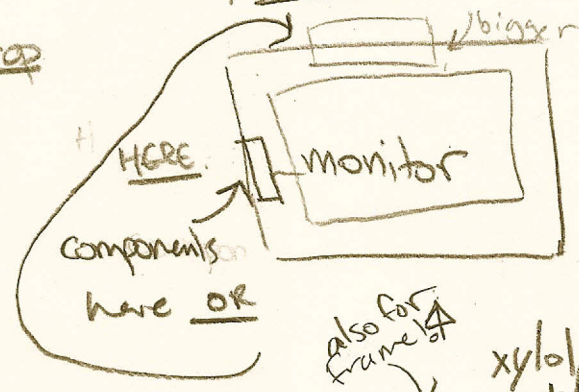 bigger
HERE
monitor
components
here OR
also for
frame
xylol